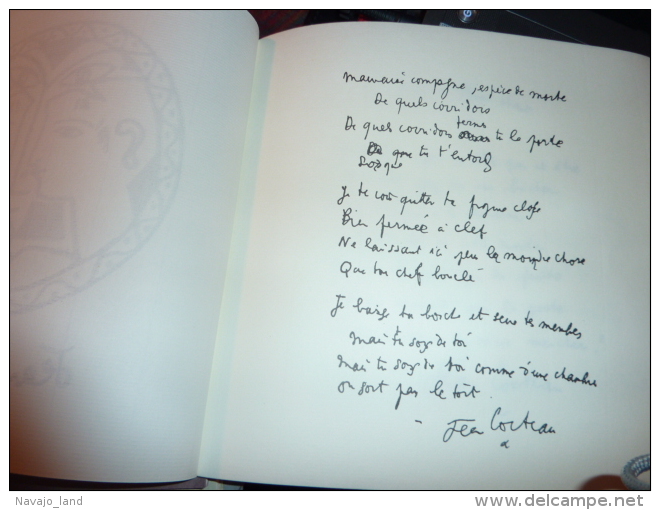 mauvaise compagne, espèce de morte
De quels corridors
De quels corridors fermes tu la porte
Dès que tu t'endors
Je te vois quitter ta figure close
Bien fermée à clef
Ne laissant ici plus la moindre chose
Que ton chef bouclé
Je baise ta bouche et serre tes membres
Mais tu sors de toi
Mais tu sors de toi comme d'une chambre
on sort par le toit.
Jean Cocteau
Navajo_land
www.delcampe.net